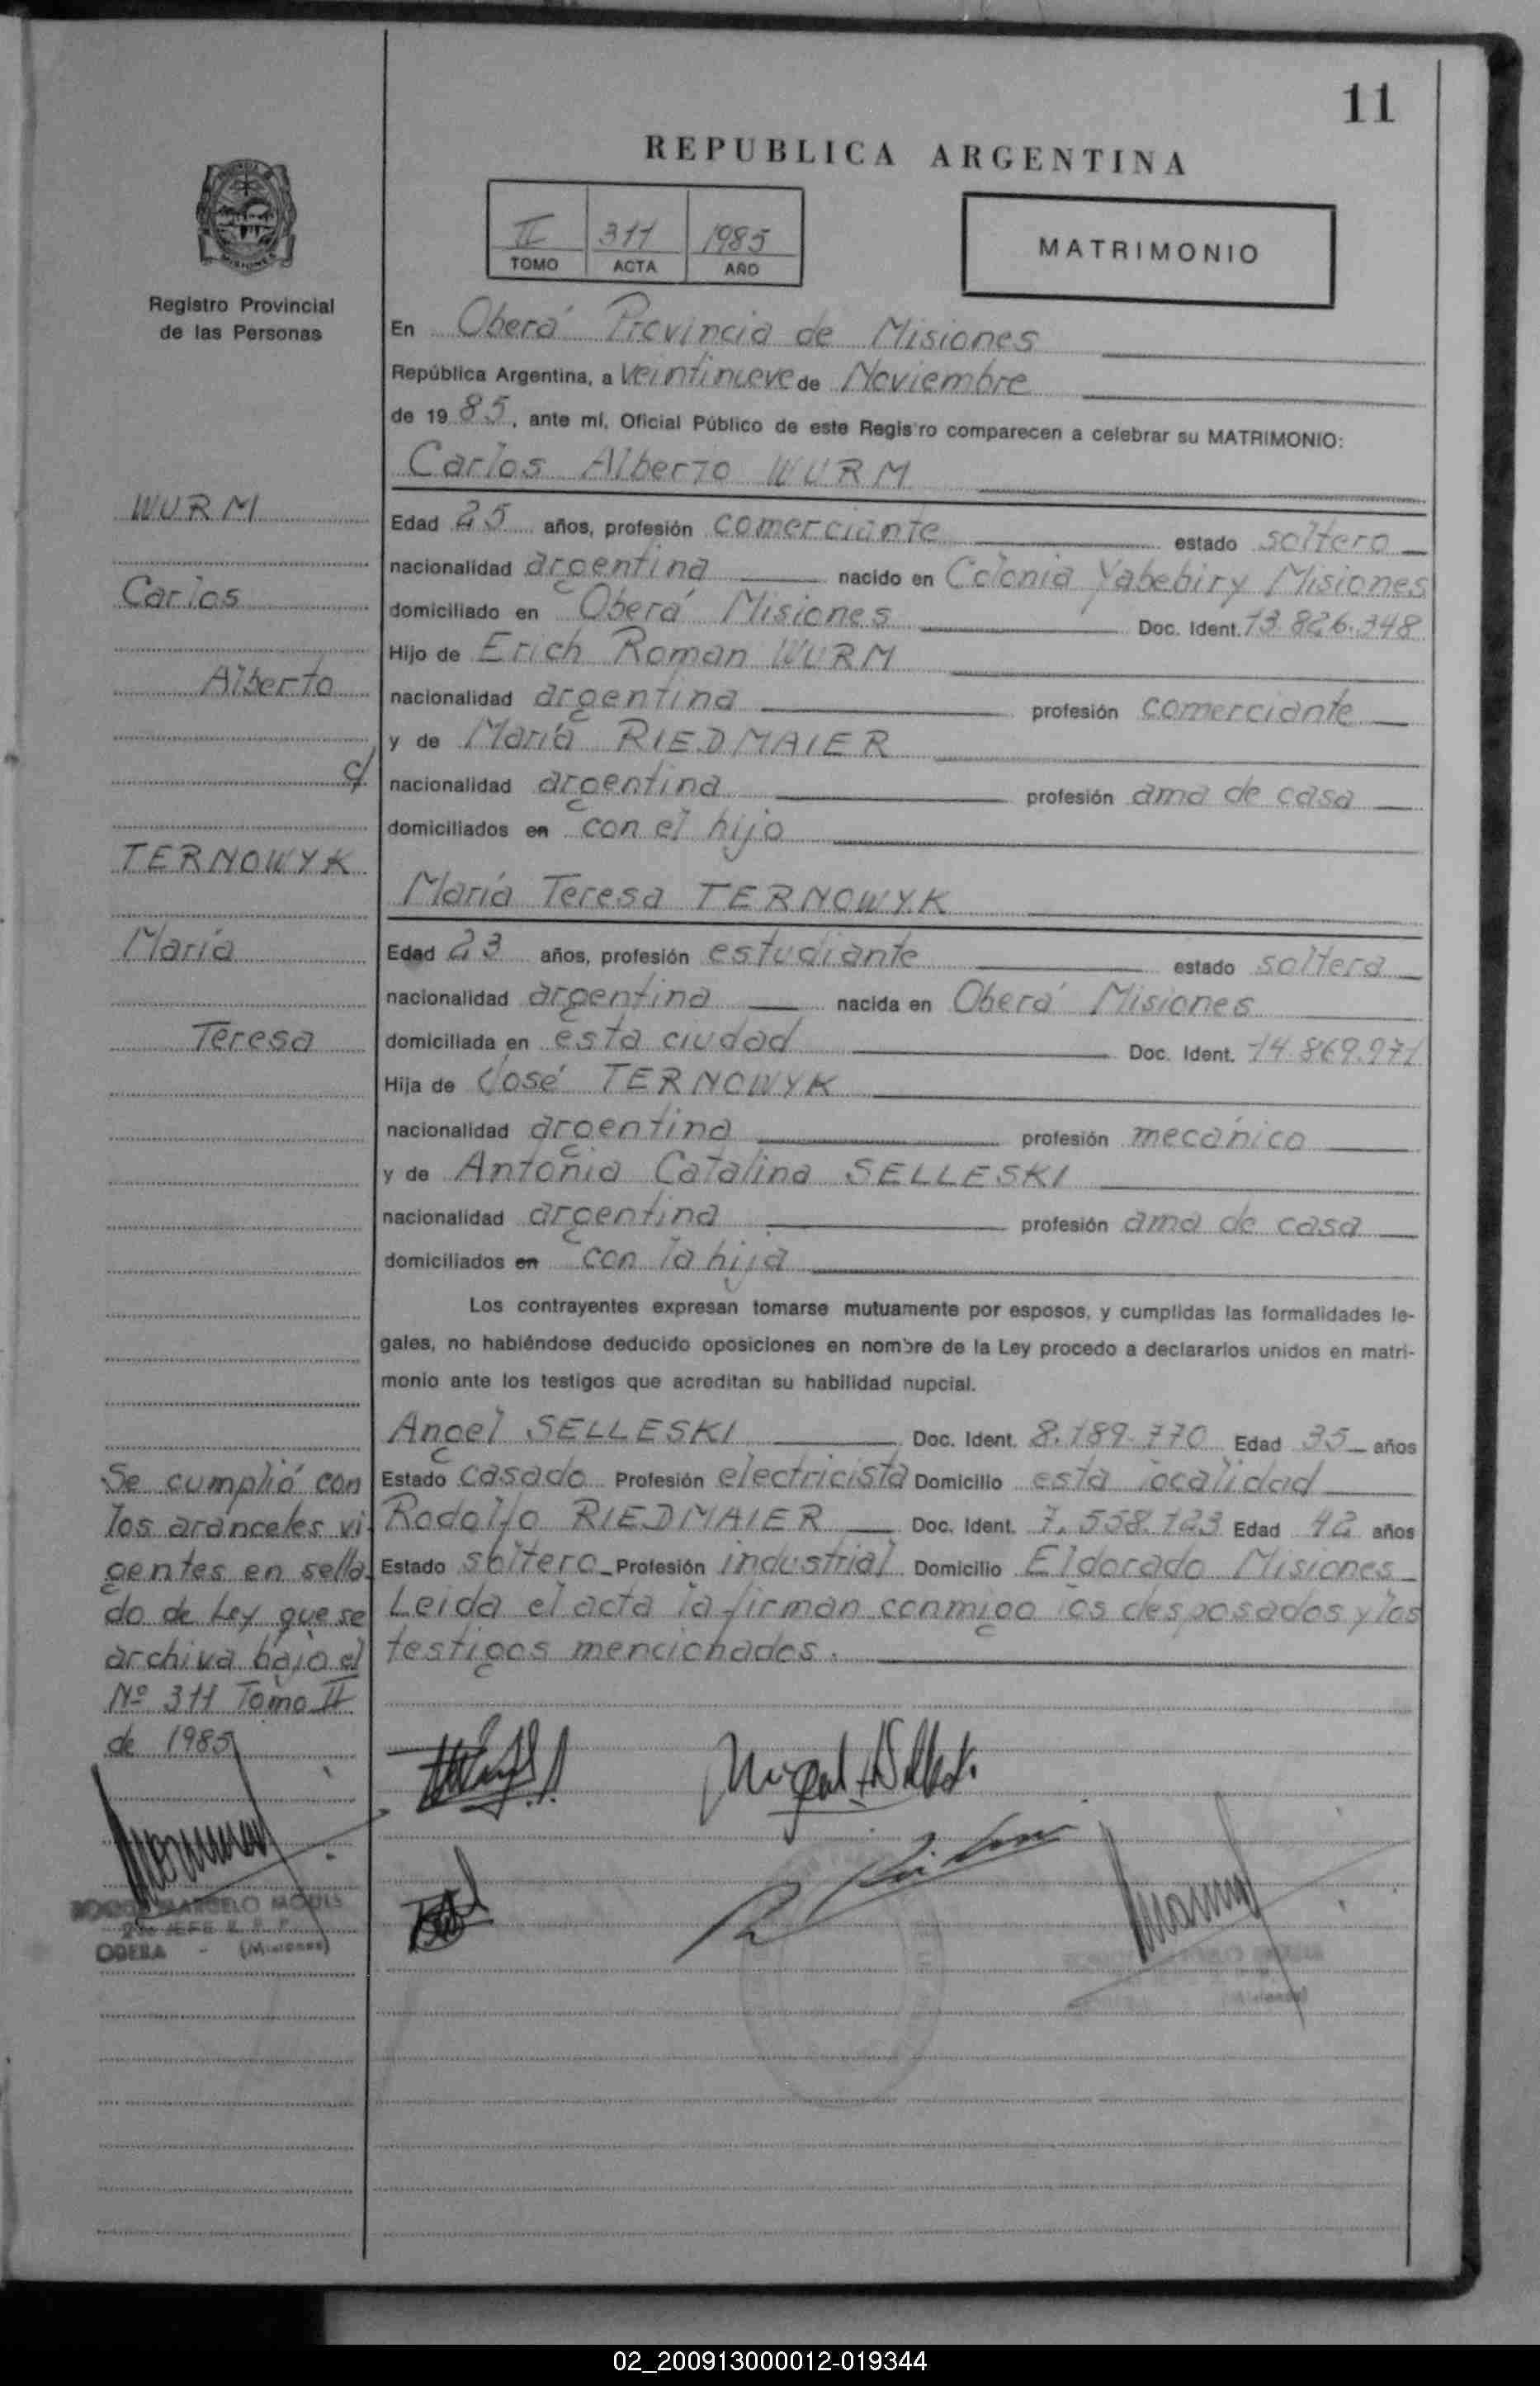 11
REPUBLICA ARGENTINA
II 311 1985
TOMO ACTA AÑO
MATRIMONIO
MISIONES
Registro Provincial
de las Personas
En Oberá Provincia de Misiones
República Argentina, a veintinueve de Noviembre
de 19 85, ante mí, Oficial Público de este Regis'ro comparecen a celebrar su MATRIMONIO:
Carlos Alberto WURM
WURM
Edad 25 años, profesión comerciante estado soltero
nacionalidad argentina nacido en Colonia Yabebiry Misiones
Carlos
domiciliado en Oberá Misiones Doc. Ident. 13.826.348
Hijo de Erich Roman WURM
Alberto
nacionalidad argentina profesión comerciante
y de María RIEDMAIER
c/
nacionalidad argentina profesión ama de casa
domiciliados en con el hijo
TERNOWYK
María Teresa TERNOWYK
María
Edad 23 años, profesión estudiante estado soltera
nacionalidad argentina nacida en Oberá Misiones
Teresa
domiciliada en esta ciudad Doc. Ident. 14.869.971
Hija de José TERNOWYK
nacionalidad argentina profesión mecánico
y de Antonia Catalina SELLESKI
nacionalidad argentina profesión ama de casa
domiciliados en con la hija
Los contrayentes expresan tomarse mutuamente por esposos, y cumplidas las formalidades le-
gales, no habiéndose deducido oposiciones en nombre de la Ley procedo a declararlos unidos en matri-
monio ante los testigos que acreditan su habilidad nupcial.
Angel SELLESKI Doc. Ident. 8.189.770 Edad 35 años
Estado casado Profesión electricista Domicilio esta localidad
Rodolfo RIEDMAIER Doc. Ident. 7.558.123 Edad 42 años
Estado soltero Profesión industrial Domicilio Eldorado Misiones
Leida el acta la firman conmigo los desposados y los
testigos mencionados.
Se cumplió con
los aranceles vi
gentes en sella
do de Ley que se
archiva bajo el
Nº 311 Tomo II
de 1985
MARCELO
OBERA - (Misiones)
(Misiones)
02_200913000012-019344